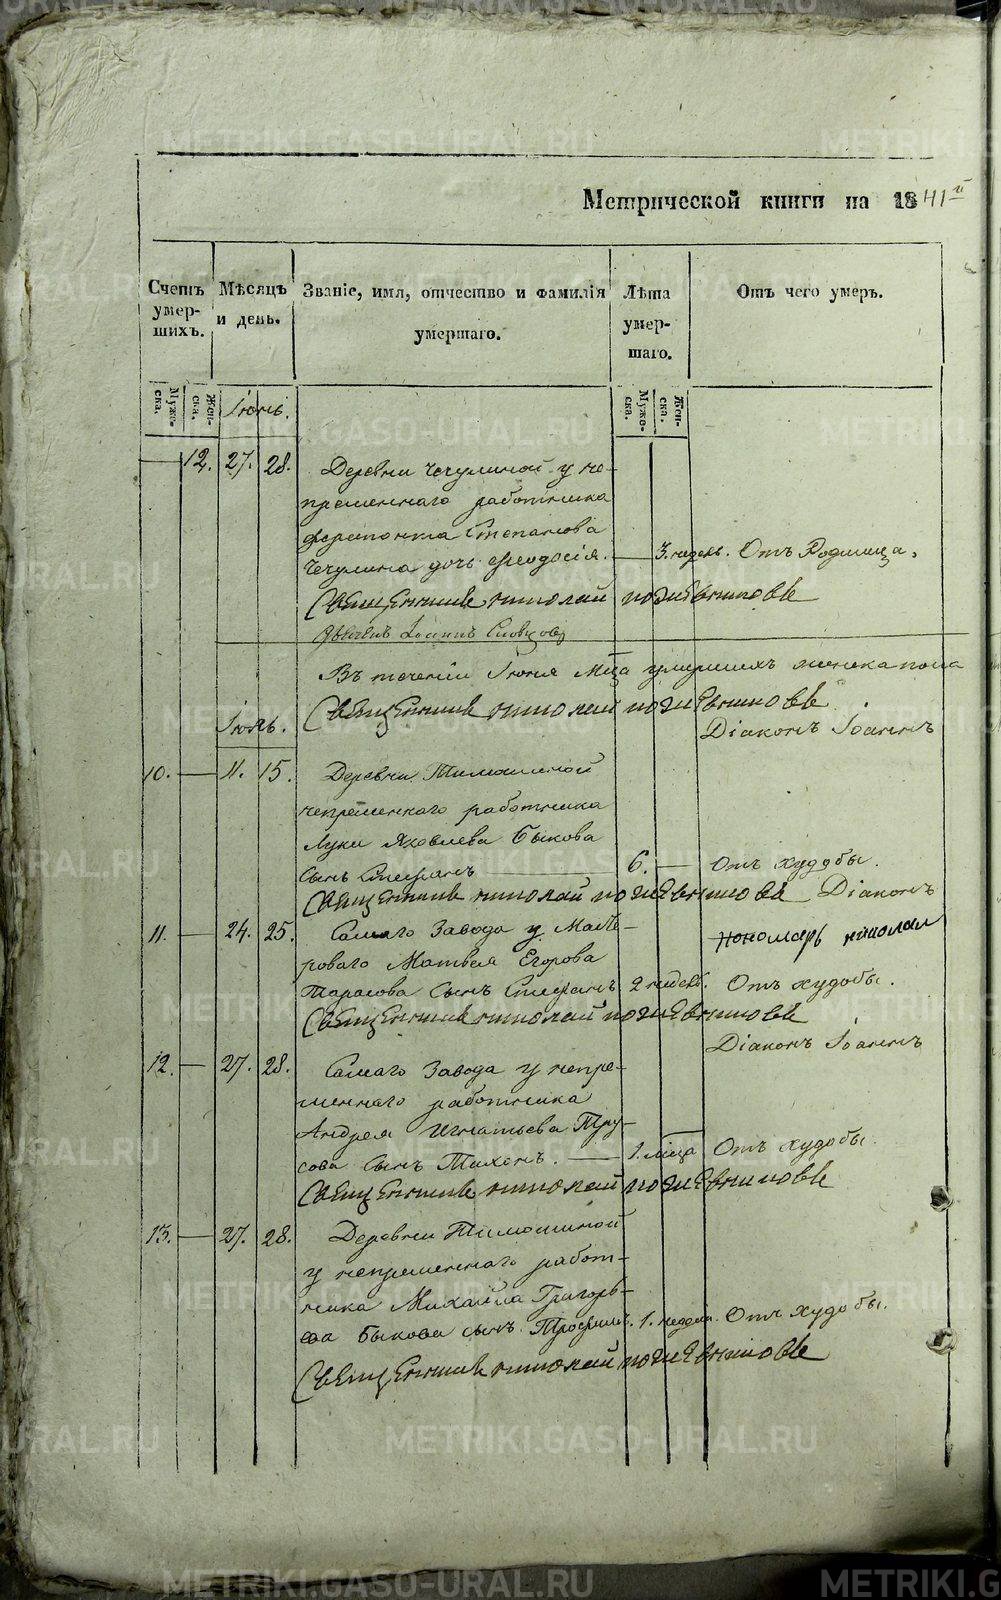 Метрической книги на 1841й
Счетъ умер-шихъ.
Мѣсяцъ и день.
Званіе, имя, отчество и фамилія
умершаго.
Лѣта умер-шаго.
Отъ чего умеръ.
Мужеска.
Женска.
Мужеска.
Женска.
Іюнь.
12. 27. 28. Деревни Чечулиной у не-
пременнаго работника
Ферапонта Степанова
Чечулина дочь Феодосія. 3. недель. Отъ Родимца.
Священникъ Николай
Дьячекъ Іоаннъ Словцовъ
Въ течении Іюня мца умершихъ женска пола
Священникъ Николай
Іюль.
Діаконъ Іоаннъ
10. 11. 15. Деревни Тимошиной
непременнаго работника
Луки Яковлева Быкова
сынъ Стефанъ 6. Отъ худобы.
Священникъ Николай Діаконъ
Пономарь Николай
11. 24. 25. Самаго Завода у Масте-
роваго Матвея Егорова
Тарасова сынъ Стефанъ 2 недель. Отъ худобы.
Священникъ Николай
Діаконъ Іоаннъ
12. 27. 28. Самаго Завода у непре-
меннаго работника
Андрея Игнатьева Тру-
сова сынъ Тихонъ. 1. мца Отъ худобы.
Священникъ Николай
13. 27. 28. Деревни Тимошиной
у непременнаго работ-
ника Михаила Григорь-
ева Быкова сынъ Трофимъ. 1. неделя. Отъ худобы.
Священникъ Николай
METRIKI.GASO-URAL.RU